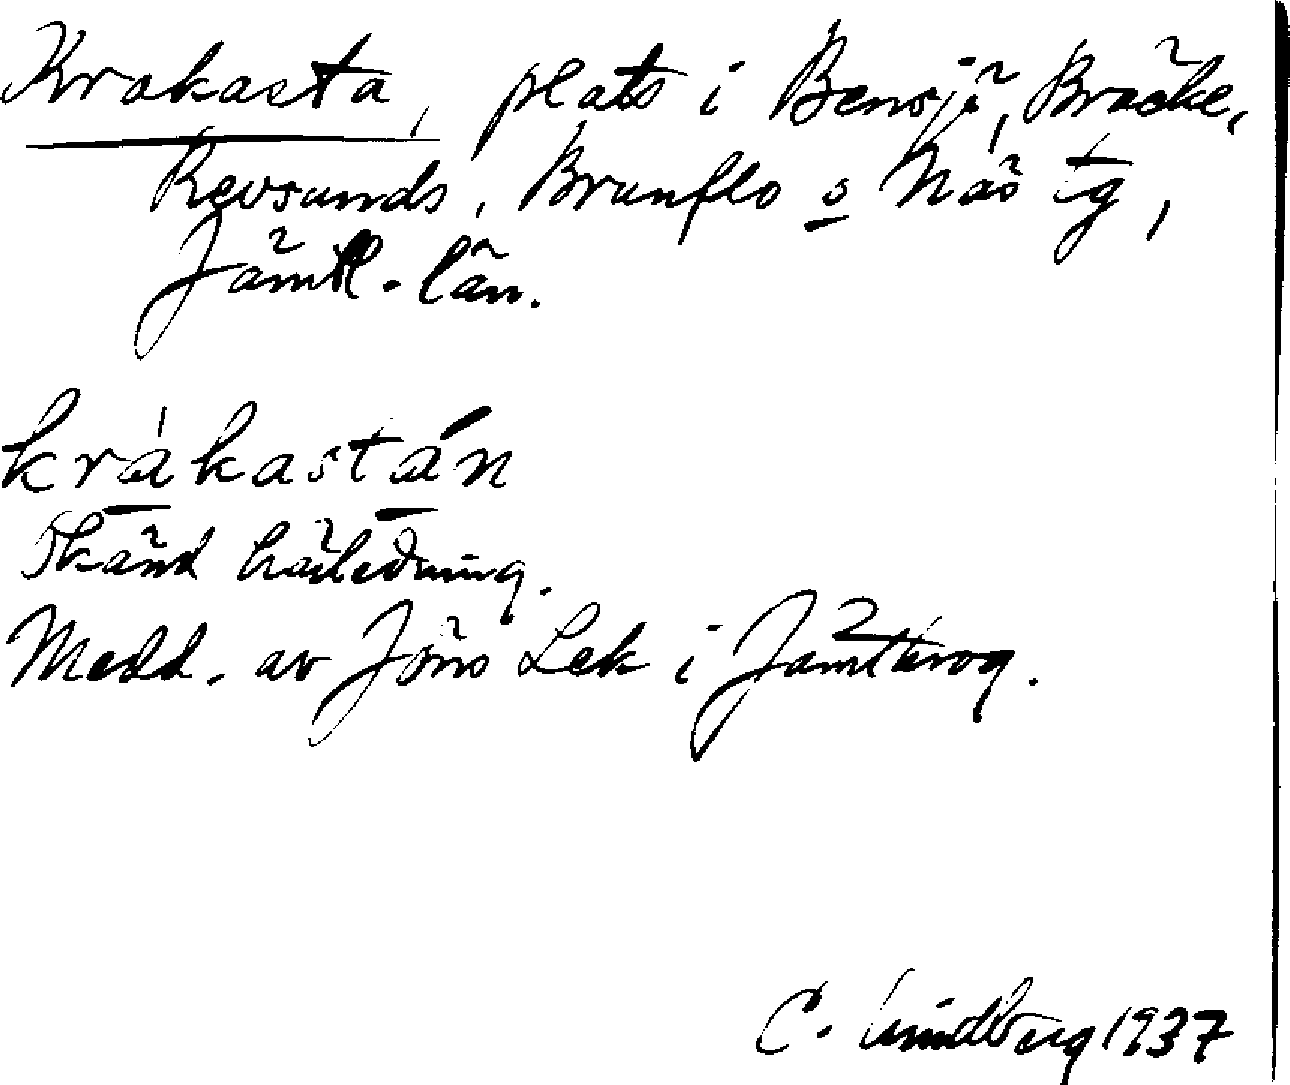 Krakasta, plats i Bensjö, Bräcke,
Revsunds, Brunflo o Näs tg,
Jämtl. län.
krákastán
Okänd härledning.
Medd. av Jöns Lek i Jämtkrog.
C. Lindberg 1937